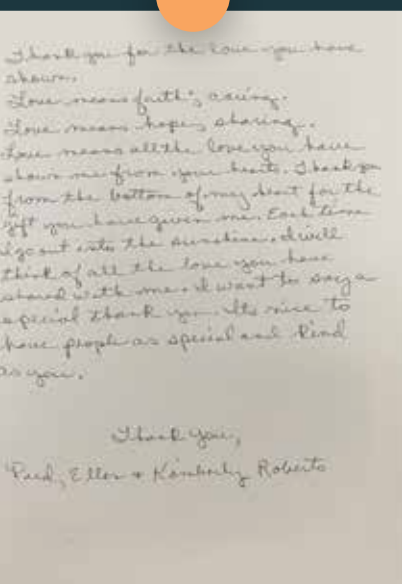 Thank you for the love you have
shown.
Love means faith, caring.
Love means hope, sharing.
Love means all the love you have
shown me from your hearts. Thank you
from the bottom of my heart for the
gift you have given me. Each time
I go out into the sunshine, I will
think of all the love you have
shared with me. I want to say a
special thank you. Its nice to
have people as special and kind
as you.
Thank You,
Ellen & Kimberly Roberts